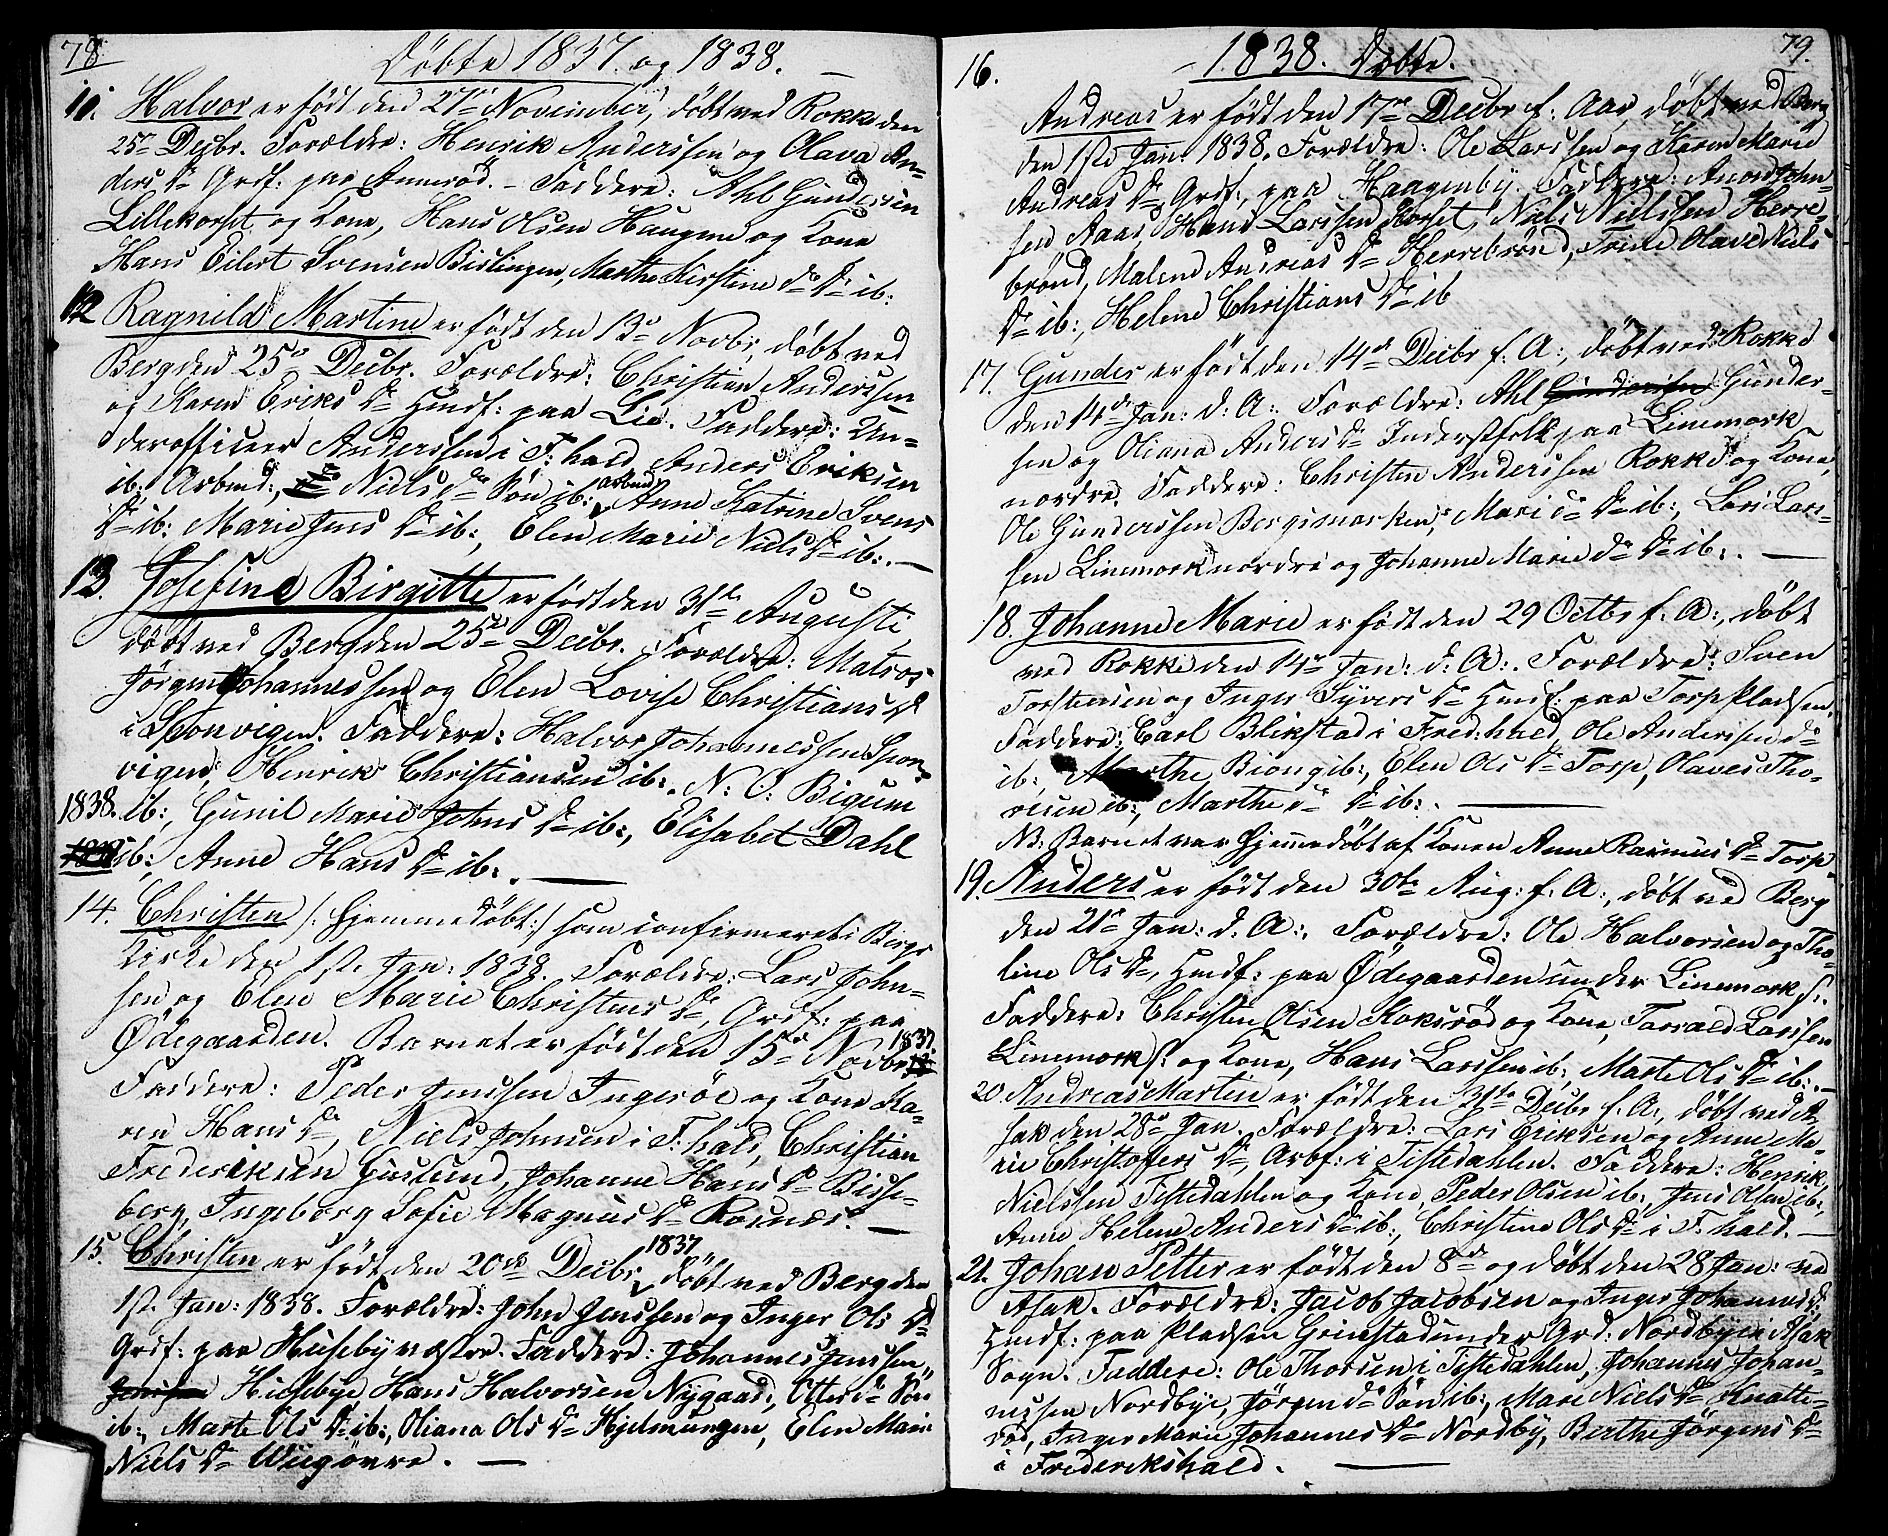 78
Döbte 1837 og 1838.
11. Halvor er født den 27de November, døbt ved Rokke den
25de Decbr. Forældre: Henrik Anderssen og Olava An-
ders Dr Grdf: paa Annerød. – Faddere: Ahl Gundersen
Lillekorset og Kone, Hans Olsen Haugene og Kone
Hans Eilert Svensen Bislingen, Marthe Kirstine do Dr ib:
12 Ragnild Martine er født den 13de Novbr, døbt ved
Berg den 25de Decbr. Forældre: Christian Anderssen
og Karen Eriks Dr Hmdf: paa Lie. Faddere: Un-
derofficeer Anderssen i F:hald, Anders Eriksen
ib: Arbmd:, Niels do Søn ib: Arbmd, Anne Katrine Svens
Dr ib: Marie Jens Dr ib:, Elen Marie Niels Dr ib:. –
13. Josefine Birgitte er født den 31te Augusti
døbt ved Berg den 25de Decbr. Forældre: Matros
Jörgen Johannessen og Elen Lovise Christians D
i Sponvigen. Faddere: Halvor Johannessen Spon-
vigen, Henrik Christiansen ib:, N: O: Bigum
1838. ib:, Gunil Marie Johns Dr ib:, Elisabet Dahl
ib:, Anne Hans Dr ib:. —
14. Christen /: hjemmedöbt:/ som confirmeret i Bergs
Kirke den 1ste Jan: 1838. Forældre: Lars John-
sen og Elen Marie Christens Dr, Grdf: paa
Ødegaarden. Barnet er født den 15de Novbr 1837.
Faddere: Peder Jenssen Ingeröe og Kone Ka-
ren Hans Dr, Niels Johnsen i F:hald, Christian
Frederiksen Guslund, Johanne Hans Dr Bisse-
berg, Ingeborg Sofie Magnus Dr Rosnæs. —
15. Christen er født den 20de Decbr 1837 døbt ved Berg den
1st. Jan: 1838. Forældre: John Jenssen og Inger Ols Dr
Grdf: paa Huseby vestre. Faddere: Johannes Jenssen
Husebye, Hans Halvorsen Nygaard, Otter do Søn
ib:, Marte Ols Dr ib:, Oliana Ols Dr Hjelmungen, Elen Marie
Niels Dr Wiigövre. —
79.
1838. Döbte.
16.
Andreas er født den 17de Decbr f: Aar, døbt ved Berg
den 1ste Jan: 1838. Forældre: Ole Larssen og Karen Marie
Andreas Dr, Grdf: paa Haagenby. Faddere: Anord John-
sen Aaas, Hans Larssen Korset, Niels Nielssen Herre-
brønd, Malene Andreas Dr Herrebrönd, Trine Olave Niels
Dr ib:, Helene Christians Dr ib
17. Gunder er født den 14de Decbr f. A:, døbt ved Rokke
den 14de Jan: d: A:. Forældre: Ahl Gunder-
sen og Oliana Anders Dr Inderstfolk paa Linemork
nordre. Faddere: Christen Anderssen Rokke og Kone
Ole Gunderssen Bergsmarken, Mari do Dr ib:, Lars Lars-
sen Linemork nordre og Johanne Marie do Dr ib:. —
18. Johanne Marie er født den 29 Octbr f: A:, døbt
ved Rokke den 14de Jan: d: A:. Forældre: Sven
Torstensen og Inger Syvers Dr Hmdf: paa Torp Pladsen.
Faddere: Carl Blikstad i Fred:hald, Ole Anderssen do
ib:, Marthe Biong ib:, Elen Ols Dr Torp, Olaves Tho-
resen ib:, Marthe do Dr ib:. —
NB. Barnet var hjemmedøbt af Konen Anne Rasmus Dr Torp.
19. Anders er født den 30te Aug: f: A:, døbt ved Berg
den 21de Jan: d: A:. Forældre: Ole Halvorsen og Tho-
line Ols Dr, Hmdf: paa Ødegaarden under Linemork s:.
Faddere: Christen Olsen Koksrød og Kone, Torvald Larssen
Linemork s: og Kone, Hans Larssen ib:, Marte Ols Dr ib:. —
20. Andreas Martin er født den 31te Decbr f. A:, døbt ved A-
sak den 28de Jan. Forældre: Lars Eriksen og Anne Ma-
rie Christofers Dr, Arbf: i Tistedahlen. Faddere: Henrik
Nielssen Tistedahlen og Kone, Peder Olsen ib:, Jens Olsen ib:,
Anne Helene Anders Dr ib:, Christine Ols Dr i F:hald. —
21. Johan Petter er født den 8de og døbt den 28 Jan: ved
Asak. Forældre: Jacob Jacobsen og Inger Johannes D:
Hmdf: paa Pladsen Grimstad under Grd: Nordbye i Asak
Sogn. Faddere: Ole Thorsen i Tistedahlen, Johannes Johan-
nessen Nordbye, Jørgen do Søn ib:, Mari Niels Dr Knatte-
rød, Inger Marie Johannes Dr Nordby, Berthe Jörgens Dr
i Frederikshald. —